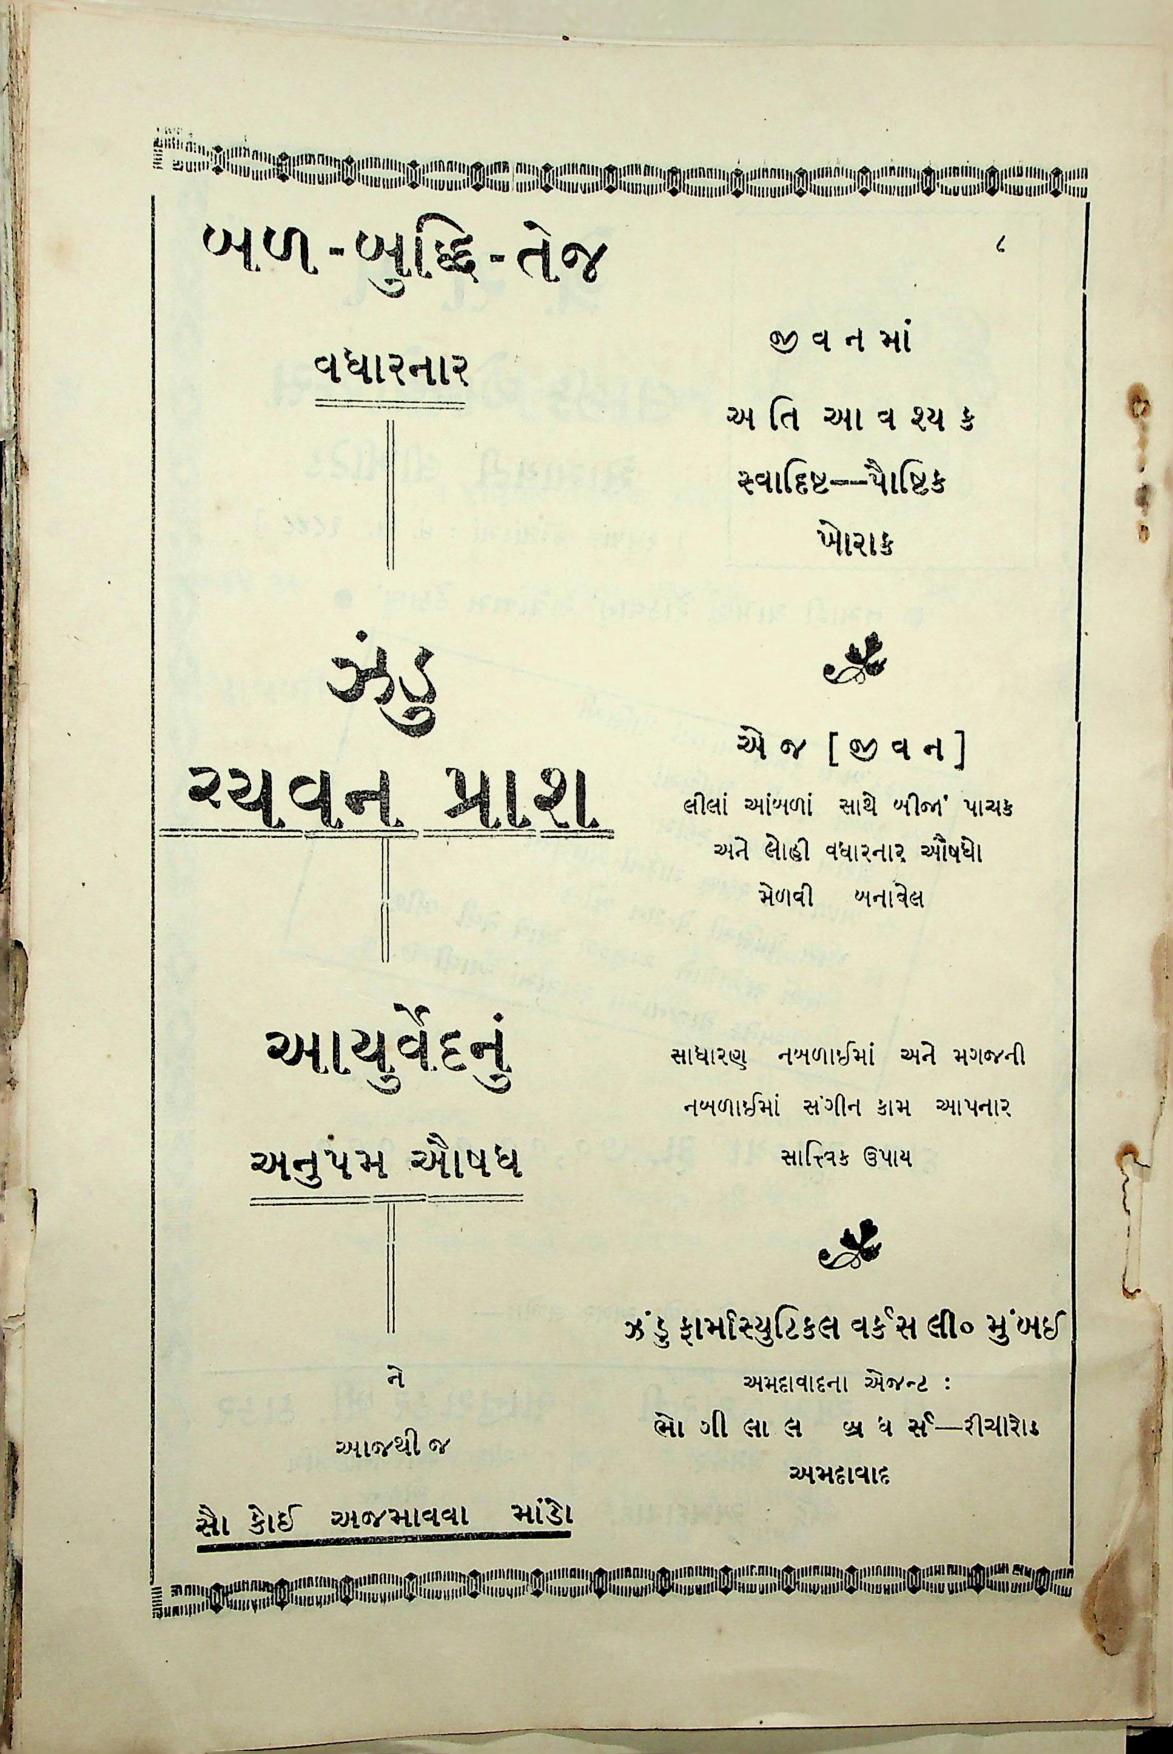 ૮
બળ-બુદ્ધિ-તેજ
વધારનાર
ઝંડુ
ચ્યવન પ્રાશ
આયુર્વેદનું
અનુપમ ઔષધ
ને
આજથી જ
સૌ કોઈ અજમાવવા માંડો
જીવનમાં
અતિ આવશ્યક
સ્વાદિષ્ટ—પૌષ્ટિક
ખોરાક
એ જ [જીવન]
લીલાં આંબળાં સાથે બીજાં પાચક
અને લોહી વધારનાર ઔષધો
મેળવી બનાવેલ
સાધારણ નબળાઈમાં અને મગજની
નબળાઈમાં સંગીન કામ આપનાર
સાત્ત્વિક ઉપાય
ઝંડુ ફાર્માસ્યુટિકલ વર્કસ લી૦ મુંબઈ
અમદાવાદના એજન્ટ :
ભોગીલાલ બ્રધર્સ—રીચીરોડ
અમદાવાદ